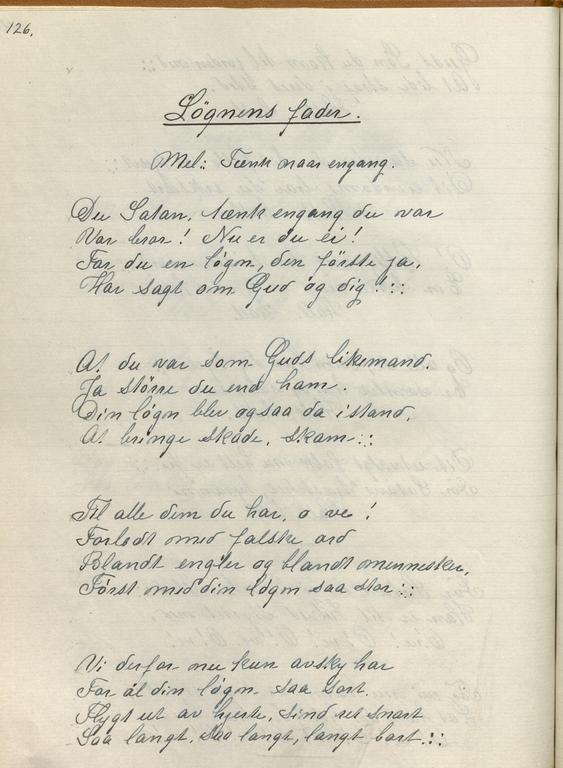 126.
Løgnens fader.
Mel: Tænk naar engang.
Du Satan, tænk engang du var
Vor bror! Nu er du ei!
For du en løgn, den første ja,
Har sagt om Gud og dig! :::
At du var som Guds likemand.
Ja større du end ham.
Din løgn blev ogsaa da istand,
At bringe skade, skam :::
Til alle dem du har, o ve!
Forledt med falske ord
Blandt engler og blandt mennesker,
Først med din løgn saa stor :::
Vi derfor nu kun avsky har
For al din løgn saa sort
Flygt ut av hjerte, sind ret snart
Saa langt, saa langt, langt bort :::